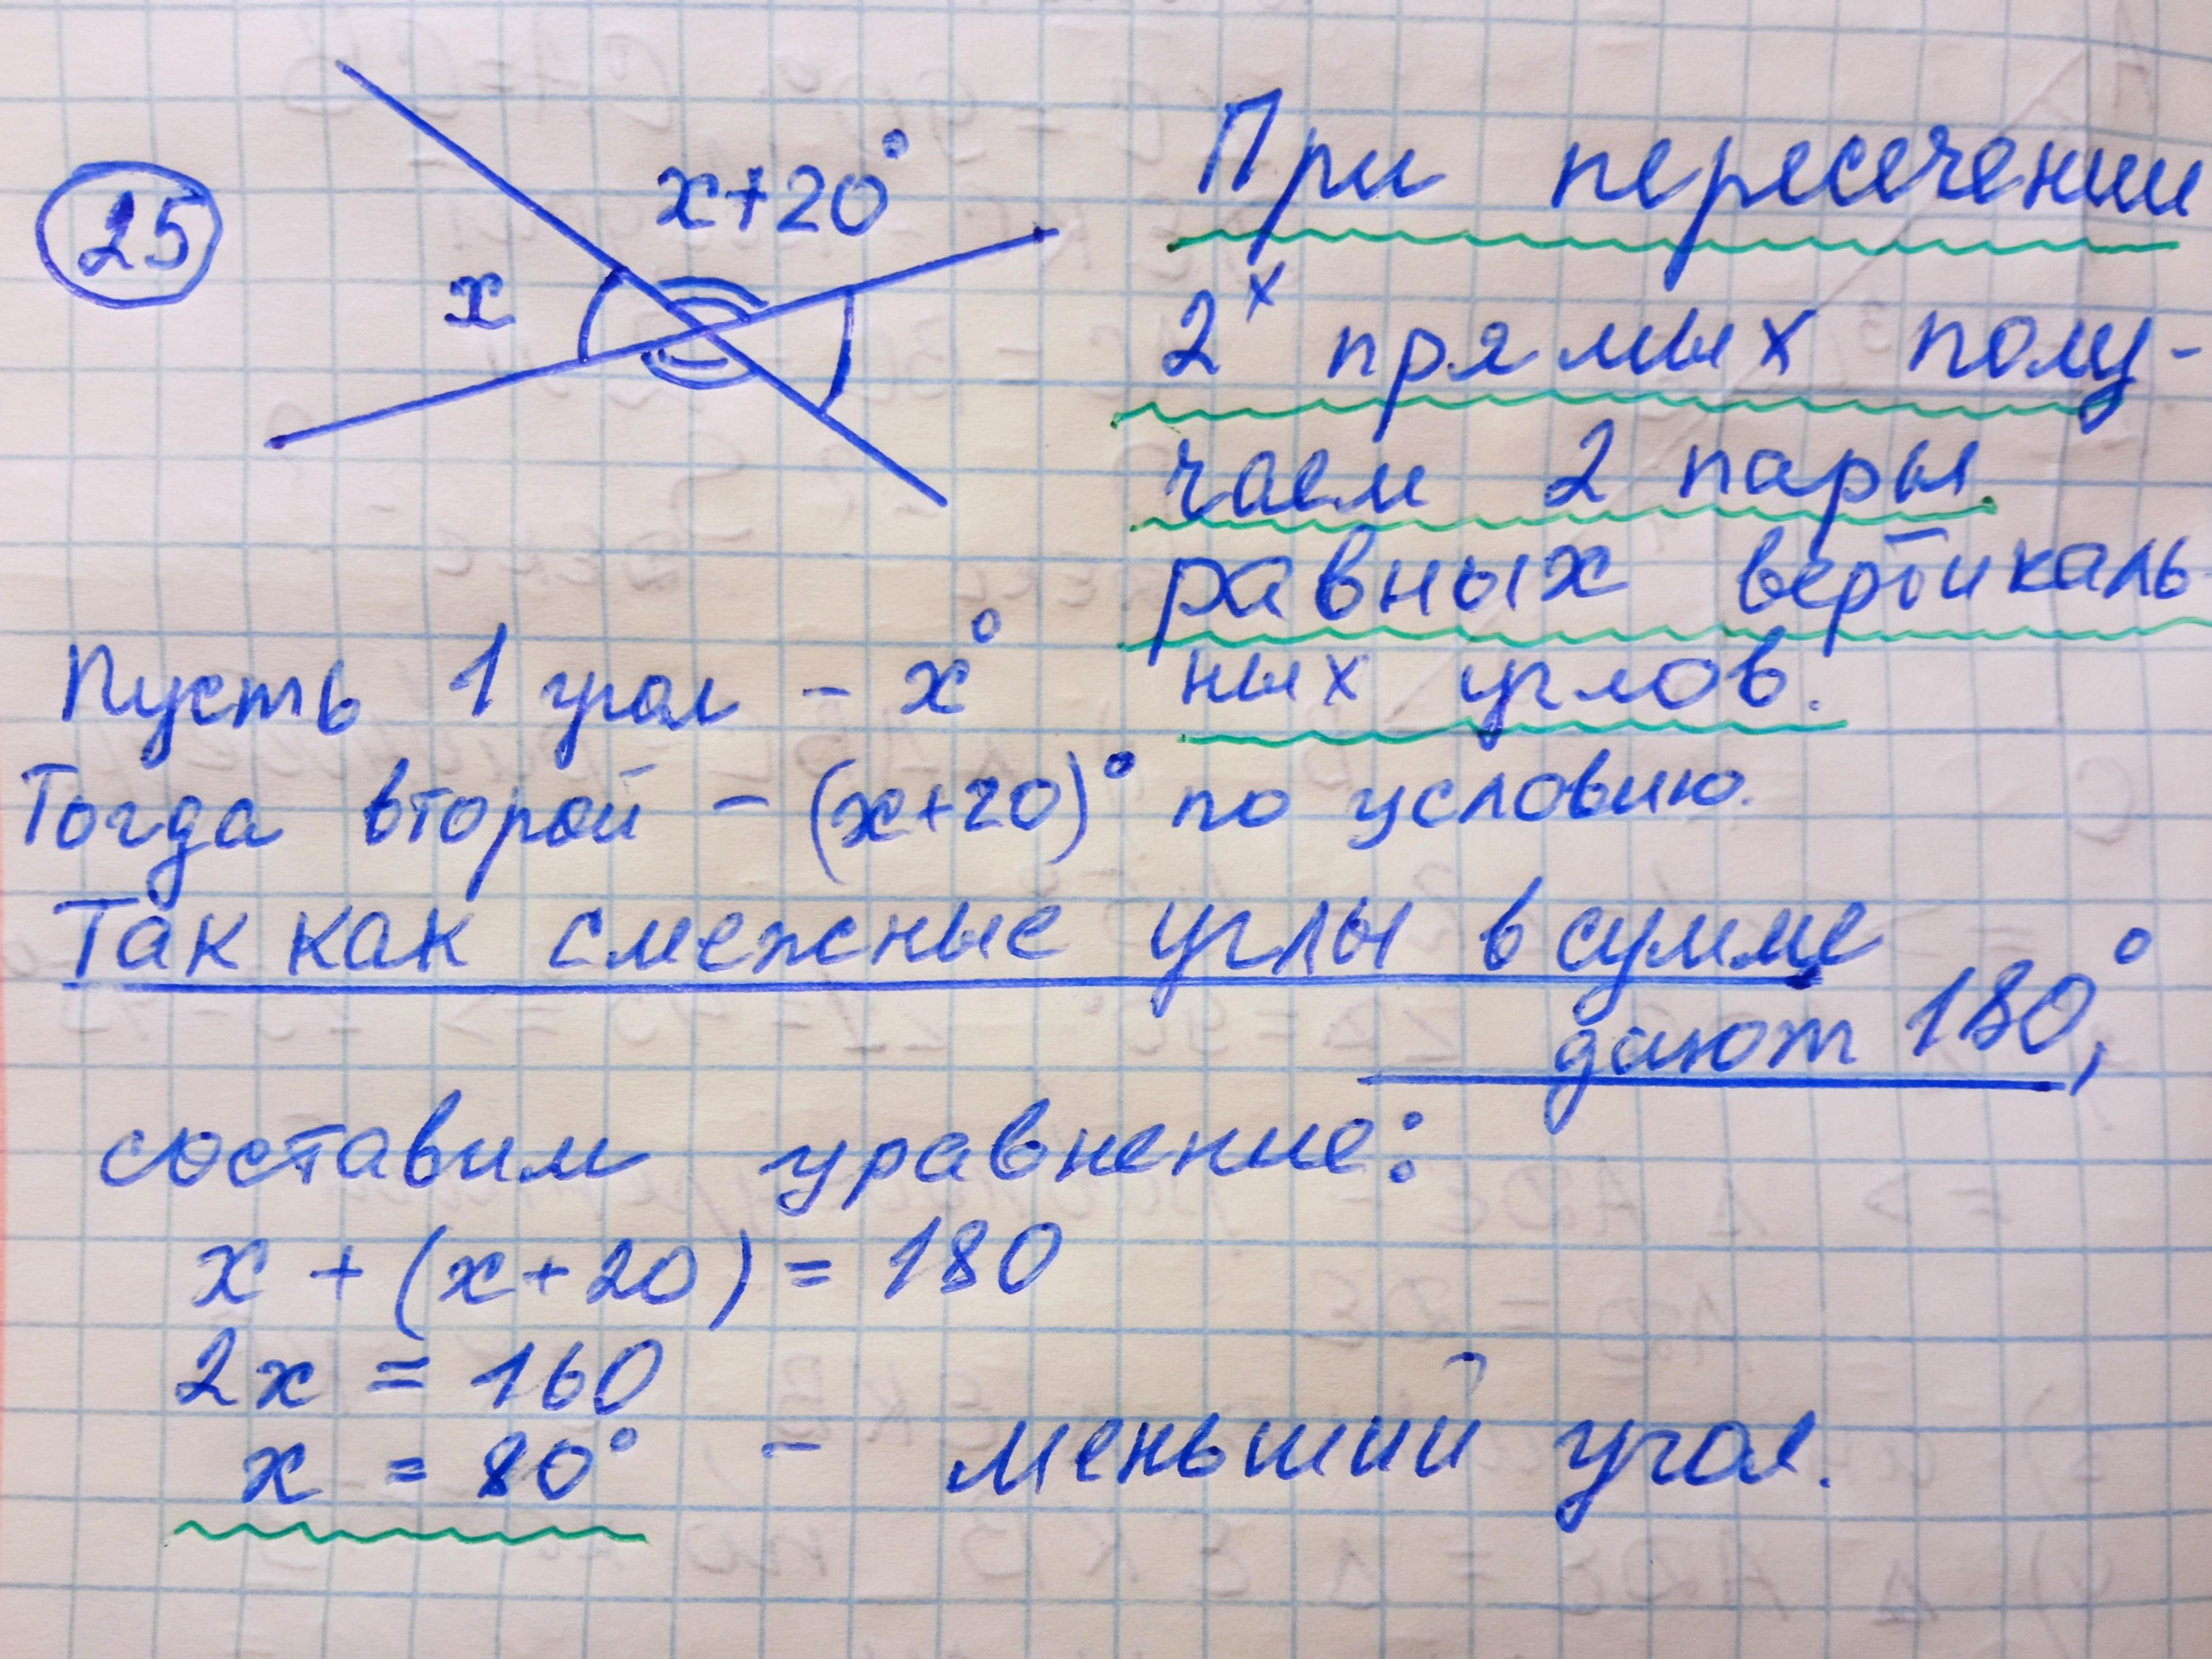 25
x+20°
x
При пересечении
2х прямых полу-
чаем 2 пары
равных вертикаль-
ных углов.
Пусть 1 угол - x°
Тогда второй - (x+20)° по условию.
Так как смежные углы в сумме
дают 180°,
составим уравнение:
x + (x+20) = 180
2x = 160
x = 80° - меньший угол.